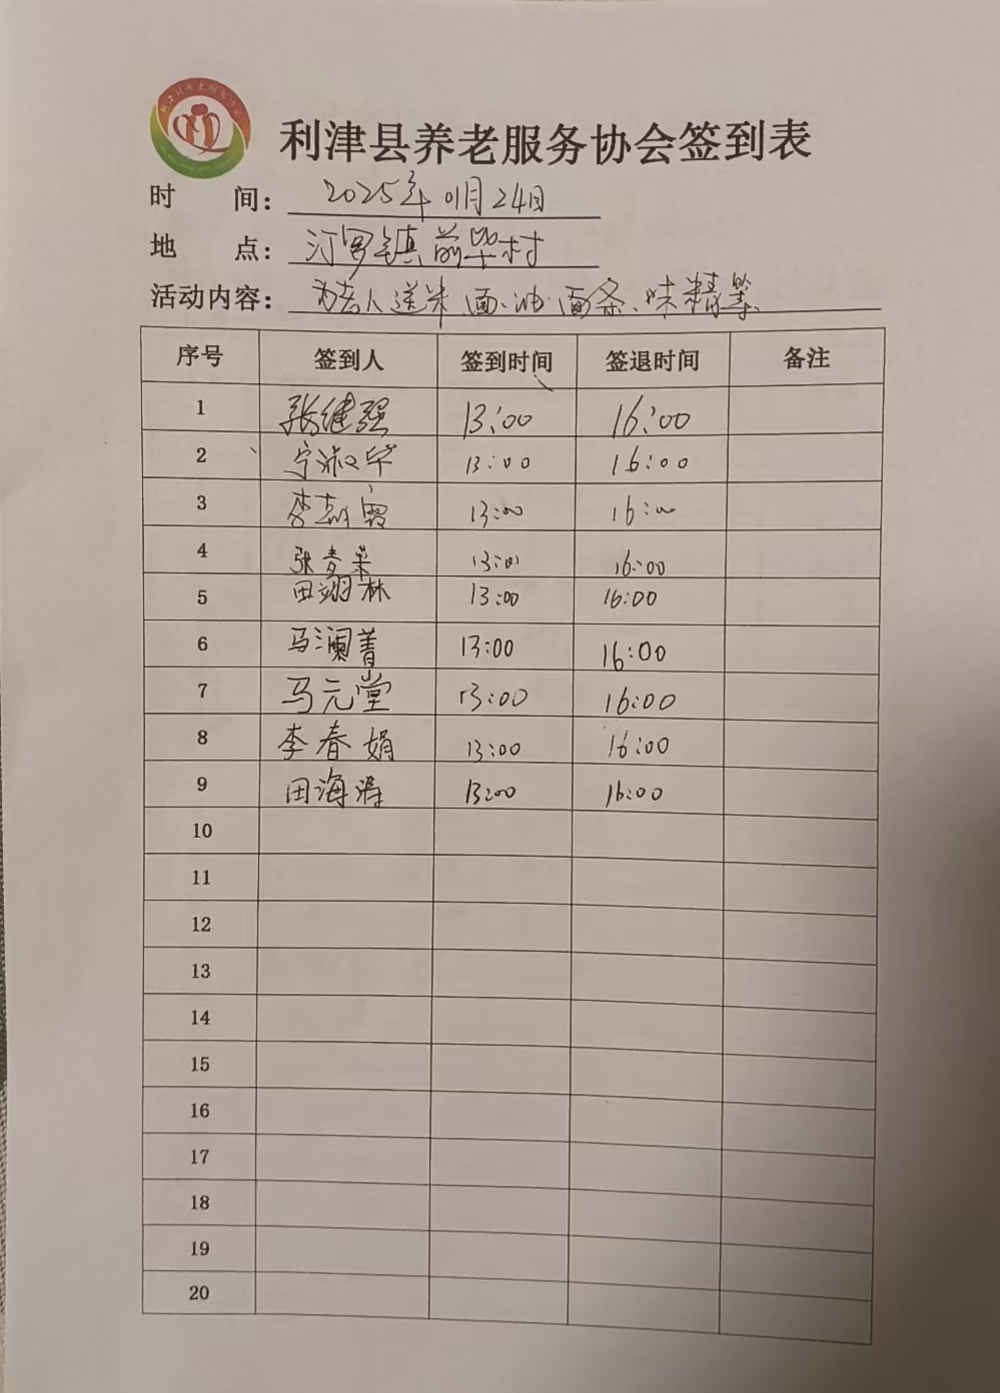 利津县养老服务协会签到表
时 间： 2025年01月24日
地 点： 汀罗镇前毕村
活动内容： 为老人送米、面、油、面条、味精等、
序号 签到人 签到时间 签退时间 备注
1 张继强 13:00 16:00
2 宁淑华 13:00 16:00
3 李 13:00 16:00
4 张麦荣 13:00 16:00
5 田翊林 13:00 16:00
6 马澜菁 13:00 16:00
7 马元堂 13:00 16:00
8 李春娟 13:00 16:00
9 田海涛 13:00 16:00
10
11
12
13
14
15
16
17
18
19
20